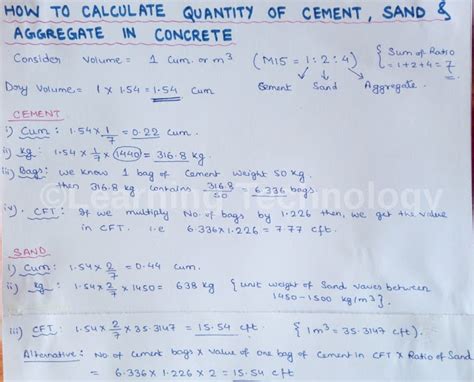 HOW TO CALCULATE QUANTITY OF CEMENT, SAND &
AGGREGATE IN CONCRETE
Consider Volume = 1 Cum. or m³ (M15 = 1:2:4) { Sum of Ratio
= 1+2+4 = 7
Dry Volume = 1 x 1.54 = 1.54 Cum Cement Sand Aggregate.
CEMENT
i) Cum: 1.54 x 1/7 = 0.22 cum.
ii) Kg: 1.54 x 1/7 x 1440 = 316.8 kg.
iii) Bags: We know 1 bag of Cement Weight 50 kg.
then 316.8 kg contains 316.8/50 = 6.336 bags.
©Learning Technology
iv). CFT: If we multiply No. of bags by 1.226 then, we get the value
in CFT. i.e 6.336 x 1.226 = 7.77 cft.
SAND
i) Cum: 1.54 x 2/7 = 0.44 cum.
ii) kg: 1.54 x 2/7 x 1450 = 638 kg { unit weight of Sand varies between
1450-1500 kg/m³ }
iii) CFT: 1.54 x 2/7 x 35.3147 = 15.54 cft. { 1m³ = 35.3147 cft }.
Alternative: No of cement bags x value of one bag of cement in CFT x Ratio of Sand
= 6.336 x 1.226 x 2 = 15.54 cft